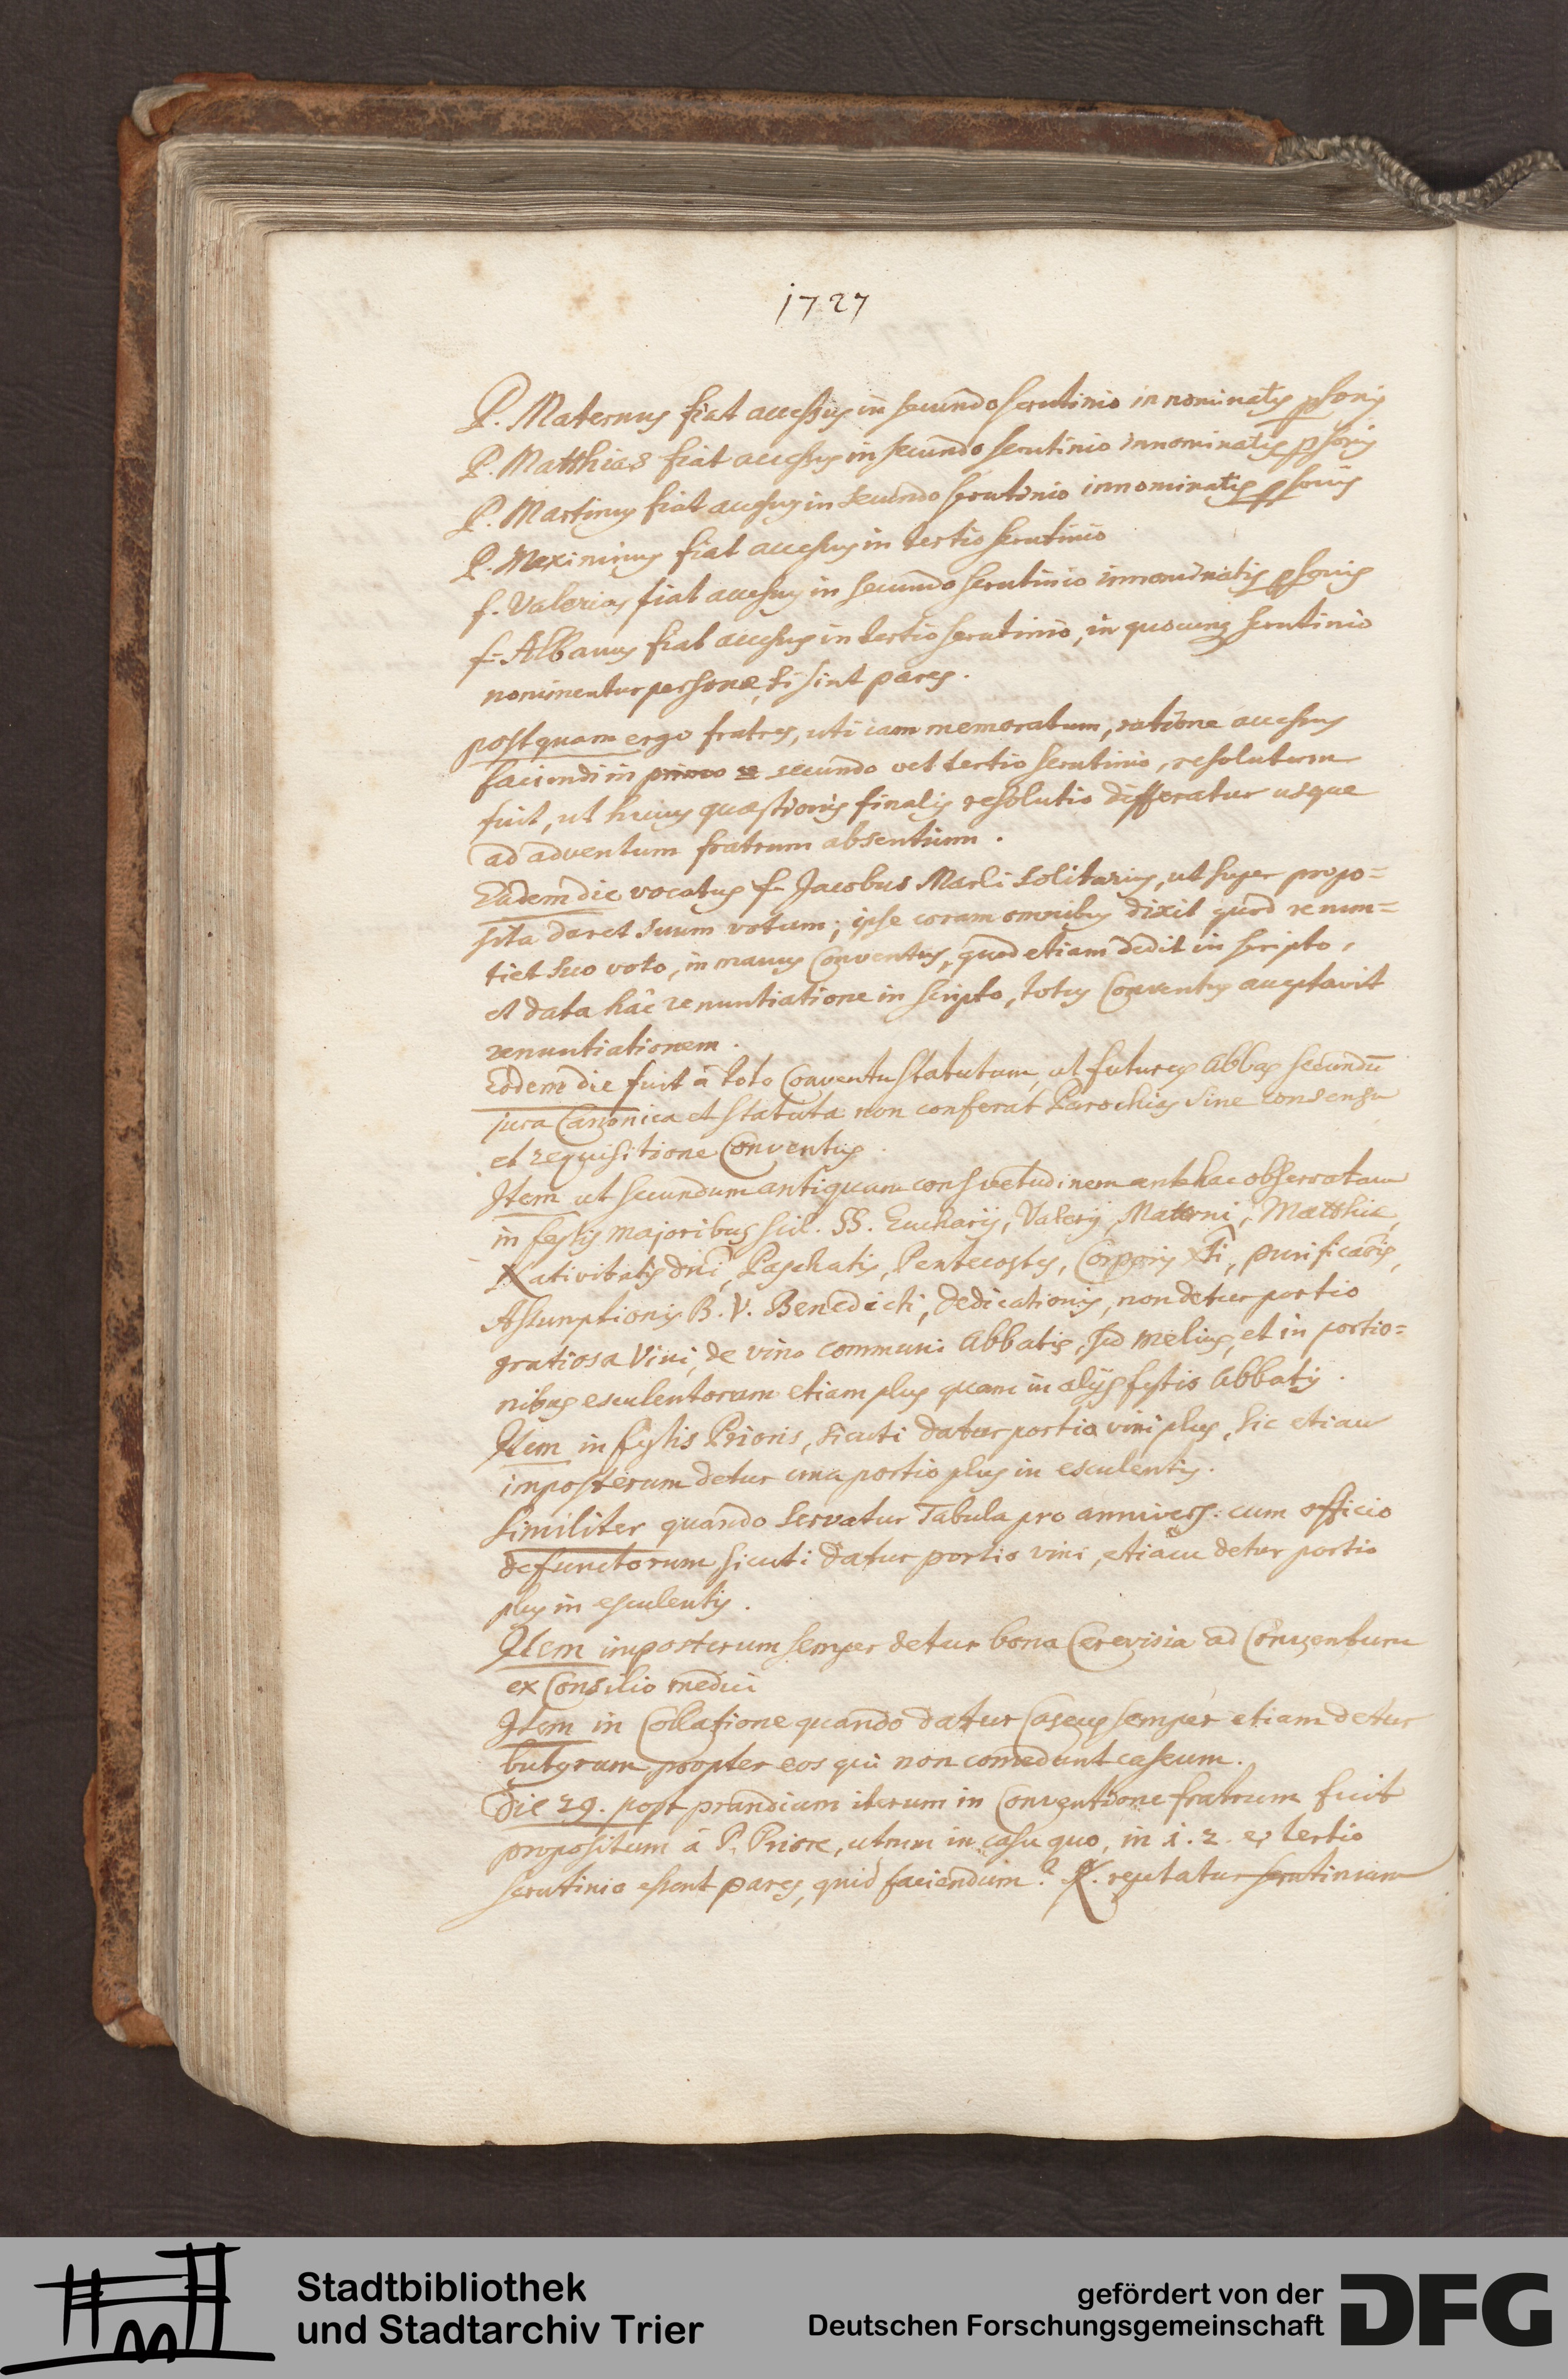 1727
P. Maternus fiat accessus in secundo scrutinio in nominatis psonis
P. Matthias fiat accessus in secundo scrutinio innominatis psonis
P. Martinus fiat accessus in secundo scrutinio innominatis psonis
P. Maximinus fiat accessus in tertio scrutinio
f. Valerius fiat accessus in secundo scrutinio innominatis psonis
f. Albanus fiat accessus in tertio scrutinio, in quocunq scrutinio
nominentur personæ, si sint pares.
postquam ergo fratres, uti iam memoratum, ratione accessus
faciendi in primo secundo vel tertio scrutinio, resolutum
fuit, ut huius quæstionis finalis resolutio differatur usque
ad adventum fratrum absentium.
Eadem die vocatus f. Jacobus Marli solitarius, ut super propo=
sita daret suum votum; ipse coram omnibus dixit quod renun=
tiet suo voto, in manus Conventus, quod etiam dedit in scripto,
et data hâc renuntiatione in scripto, totus Conventus acceptavit
renuntiationem.
Eodem die fuit â toto Conventu statutum, ut futurus Abbas secundū
jura Canonica et statuta non conferat Parochias sine consensu
et requisitione Conventus.
Item ut secundum antiquam consvetudinem antehac observatam
in festis majoribus scil. SS. Eucharij, Valerij, Materni, Matthiæ,
Nativitatis dni, Paschatis, Pentecostes, Corporis Xti, purificaōis,
Assumptionis B. V. Benedicti, Dedicationis, non detur portio
gratiosa Vini, de vino communi Abbatis, sed melius, et in portio=
nibus esculentorum etiam plus quam in alijs festis Abbatis.
Item in festis Prioris, sicuti datur portio vini plus, sic etiam
imposterum detur una portio plus in esculentis.
Similiter quando servatur Tabula pro annivers: cum officio
defunctorum, sicuti datur portio vini, etiam detur portio
plus in esculentis.
Item imposterum semper detur bona Cerevisia ad Conventum
ex Consilio medici
Item in Collatione quando datur Caseus semper etiam detur
butyrum propter eos qui non comedunt caseum.
Die 29. post prandium iterum in Conventione fratrum fuit
propositum â P. Priore, utrum in casu quo, in 1. 2. et tertio
scrutinio essent pares, quid faciendum? R. repetatur scrutinium
Stadtbibliothek
und Stadtarchiv Trier
gefördert von der
Deutschen Forschungsgemeinschaft
DFG